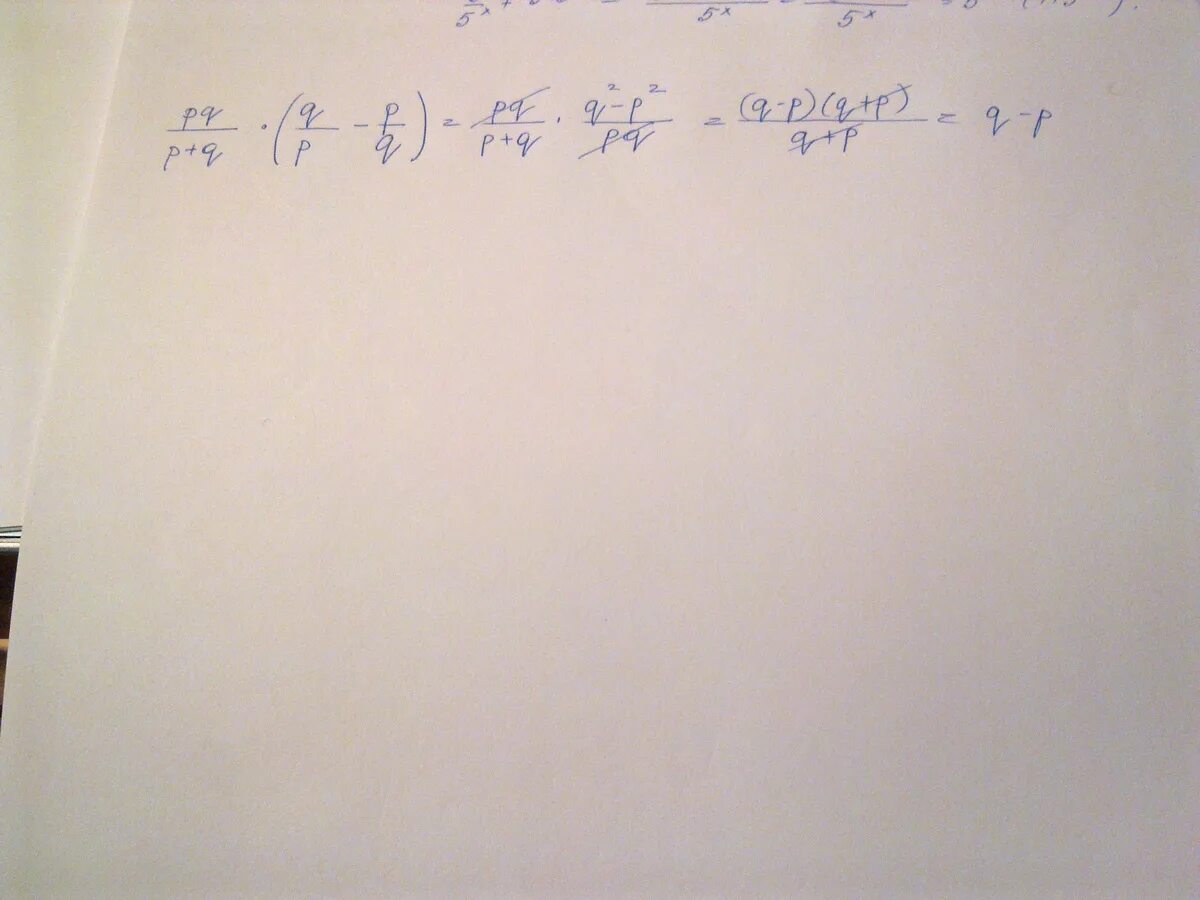 5^x + = 5^x = 5^x = 5
pq/(p+q) · (q/p - p/q) = pq/(p+q) · (q²-p²)/(pq) = (q-p)(q+p)/(q+p) = q-p